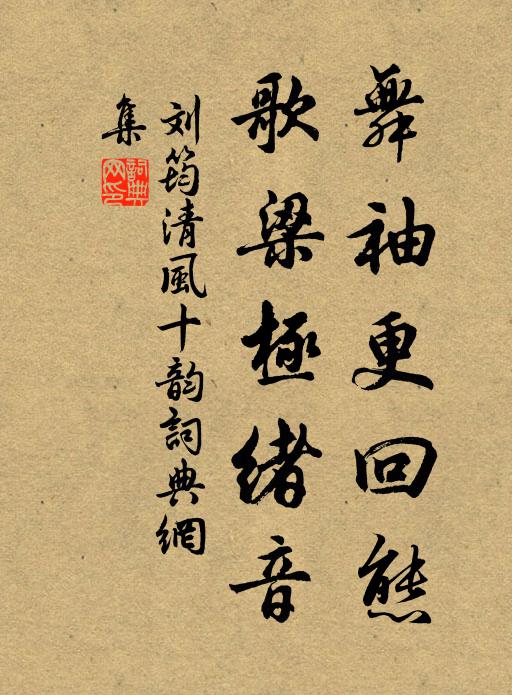 舞袖更回態
歌梁極緒音
刘筠清風十韵詞典網
集
詞典网印